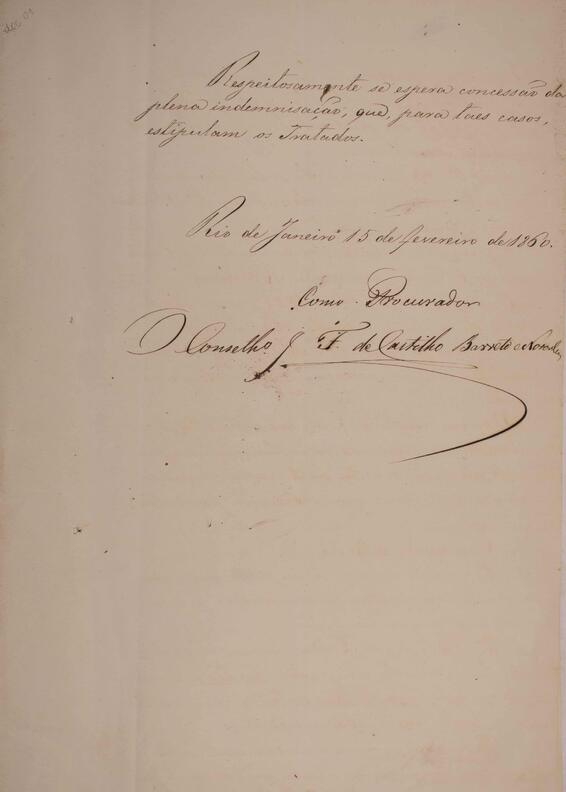 doc 01
Respeitosamente se espera concessão da
plena indemnisação, que, para taes casos,
estipulam os Tratados.
Rio de Janeiro 15 de fevereiro de 1860.
Como Procurador
O Conselhº J F. de Castilho Barreto e Noronha